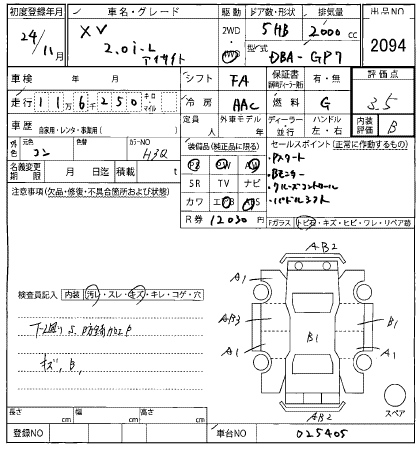 初度登録年月 車名・グレード 駆動 ドア数・形状 排気量 出品NO
24年/11月 XV 2.0i-L アイサイト 2WD 4WD 5HB 2000cc 2094
型式 DBA-GP7
車検 年 月 シフト FA 保証書 有・無 評価点 3.5
走行 11万6千250 キロ・マイル 冷房 AAC 燃料 G
車歴 自家用・レンタ・事業用( ) 定員 人 外車モデル 年 ディーラー 並行 ハンドル 左・右 内装評価 B
外色 元色 コン 色替 カラーNO H3Q
装備品(純正品に限る) セールスポイント(正常に作動するもの)
PS PW SR TV ナビ カワ エアB ABS
・Pスタート
・Bモニター
・クルーズコントロール
・パドルシフト
名義変更期限 月 日迄 積載 t
R券 12030円
注意事項(欠品・修復・不具合箇所および状態)
Fガラス トビ石・キズ・ヒビ・ワレ・リペア跡
検査員記入 内装 汚れ・スレ・キズ・キレ・コゲ・穴
下廻りS、防錆加工P
キズ、B,
AB2
A1 A1
AB3 B1 B1
A1 A1
AB2
スペア
長さ cm 幅 cm 高さ cm
登録NO 車台NO 025405